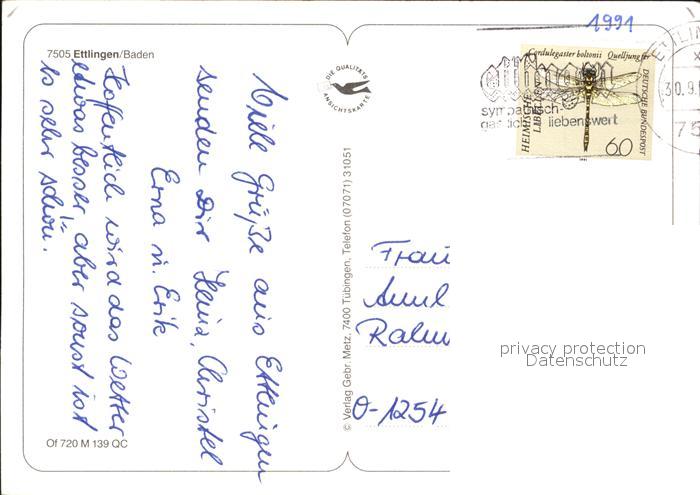 1991
7505 Ettlingen/Baden
DIE QUALITÄTS
ANSICHTSKARTE
Cordulegaster boltonii Quelljungfer
HEIMISCHE
LIBELLEN
DEUTSCHE BUNDESPOST
60
1991
ettlingen
sympathisch
gastlich liebenswert
ETTLIN
30.9.
75
Viele Grüße aus Ettlingen
senden Dir Christel
Erna u. Erik
Hoffentlich wird das Wetter
etwas besser, aber sonst ist
es sehr schön.
© Verlag Gebr. Metz, 7400 Tübingen, Telefon (07071) 31051
Frau
O-1254
privacy protection
Datenschutz
Of 720 M 139 QC